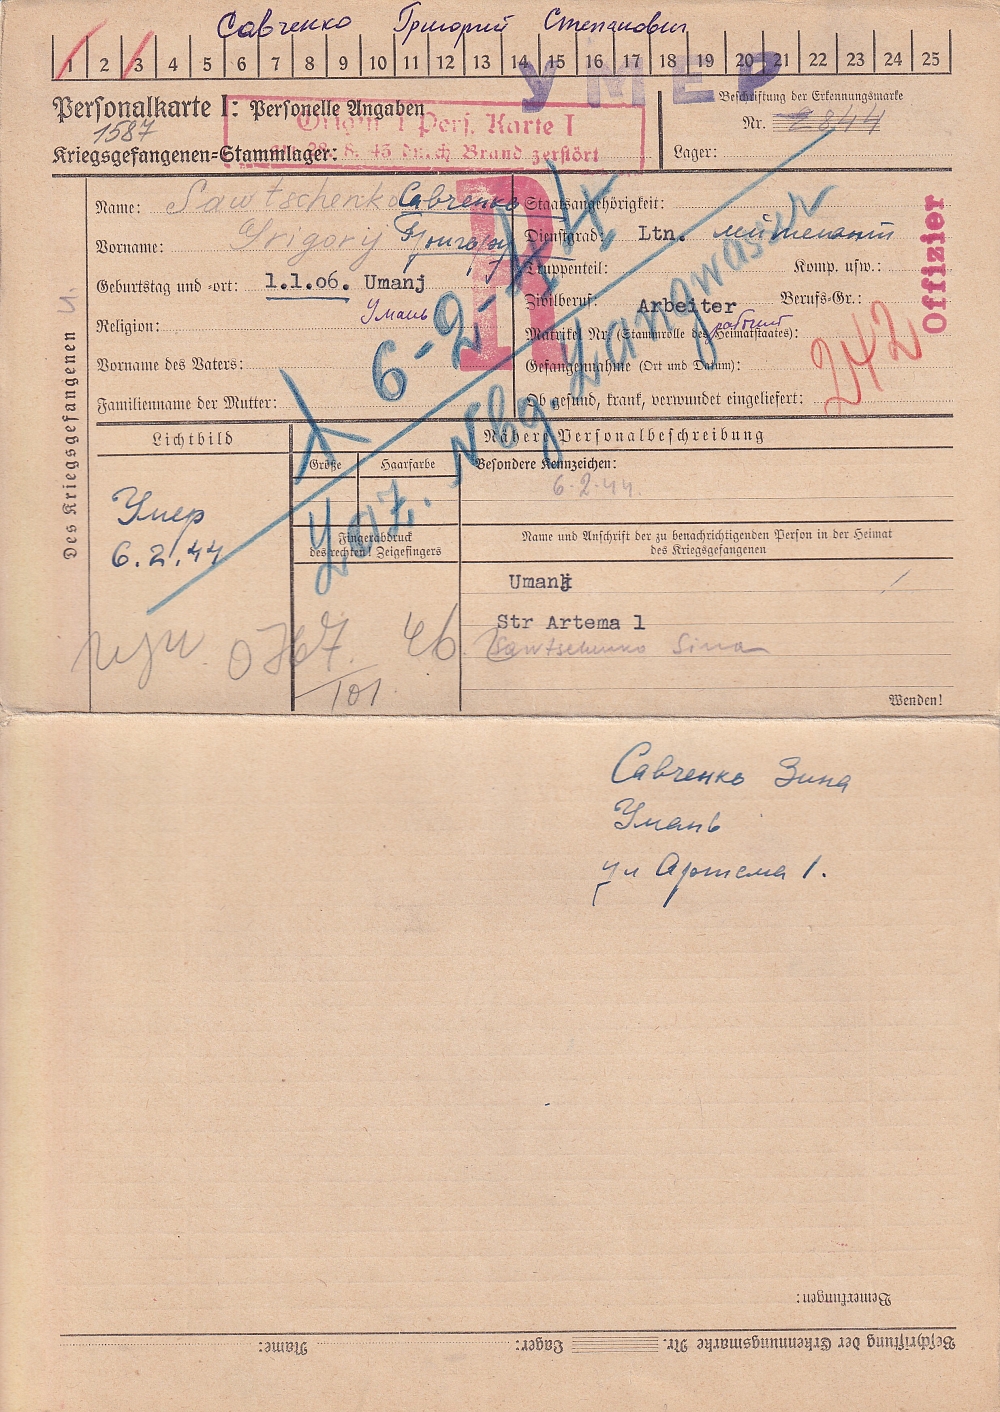 Савченко Григорий Степанович
1 2 3 4 5 6 7 8 9 10 11 12 13 14 15 16 17 18 19 20 21 22 23 24 25
УМЕР
Personalkarte I: Personelle Angaben
1587
Kriegsgefangenen=Stammlager:
Origin. I Pers. Karte I
28. 8. 43 durch Brand zerstört
Beschriftung der Erkennungsmarke
Nr. 2844
Lager:
Des Kriegsgefangenen
Name: Sawtschenko Савченко
Vorname: Grigorij Григорий
Geburtstag und -ort: 1.1.06. Umanj
Умань
Religion:
Vorname des Vaters:
Familienname der Mutter:
R
Staatsangehörigkeit:
Dienstgrad: Ltn. лейтенант
Truppenteil: Komp. usw.:
Zivilberuf: Arbeiter Berufs-Gr.:
рабочий
Matrikel Nr. (Stammrolle des Heimatstaates):
Gefangennahme (Ort und Datum):
Ob gesund, krank, verwundet eingeliefert:
Offizier
242
6-2-44
Laz. Nbg. Langwasser
Lichtbild
Умер
6.2.44
Nähere Personalbeschreibung
Größe Haarfarbe Besondere Kennzeichen:
6-2-44.
Fingerabdruck
des rechten! Zeigefingers
Name und Anschrift der zu benachrichtigenden Person in der Heimat
des Kriegsgefangenen
Umanj
Str Artema 1
Sawtschenko Sina
0767. 46.
101
Wenden!
Савченко Зина
Умань
ул Артема 1.
Bemerkungen:
Beschriftung der Erkennungsmarke Nr. Lager: Name: